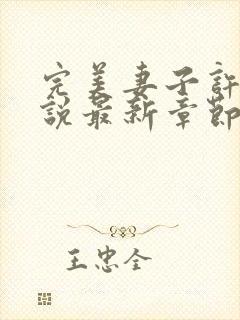 完美妻子許
說最新章節
王忠全